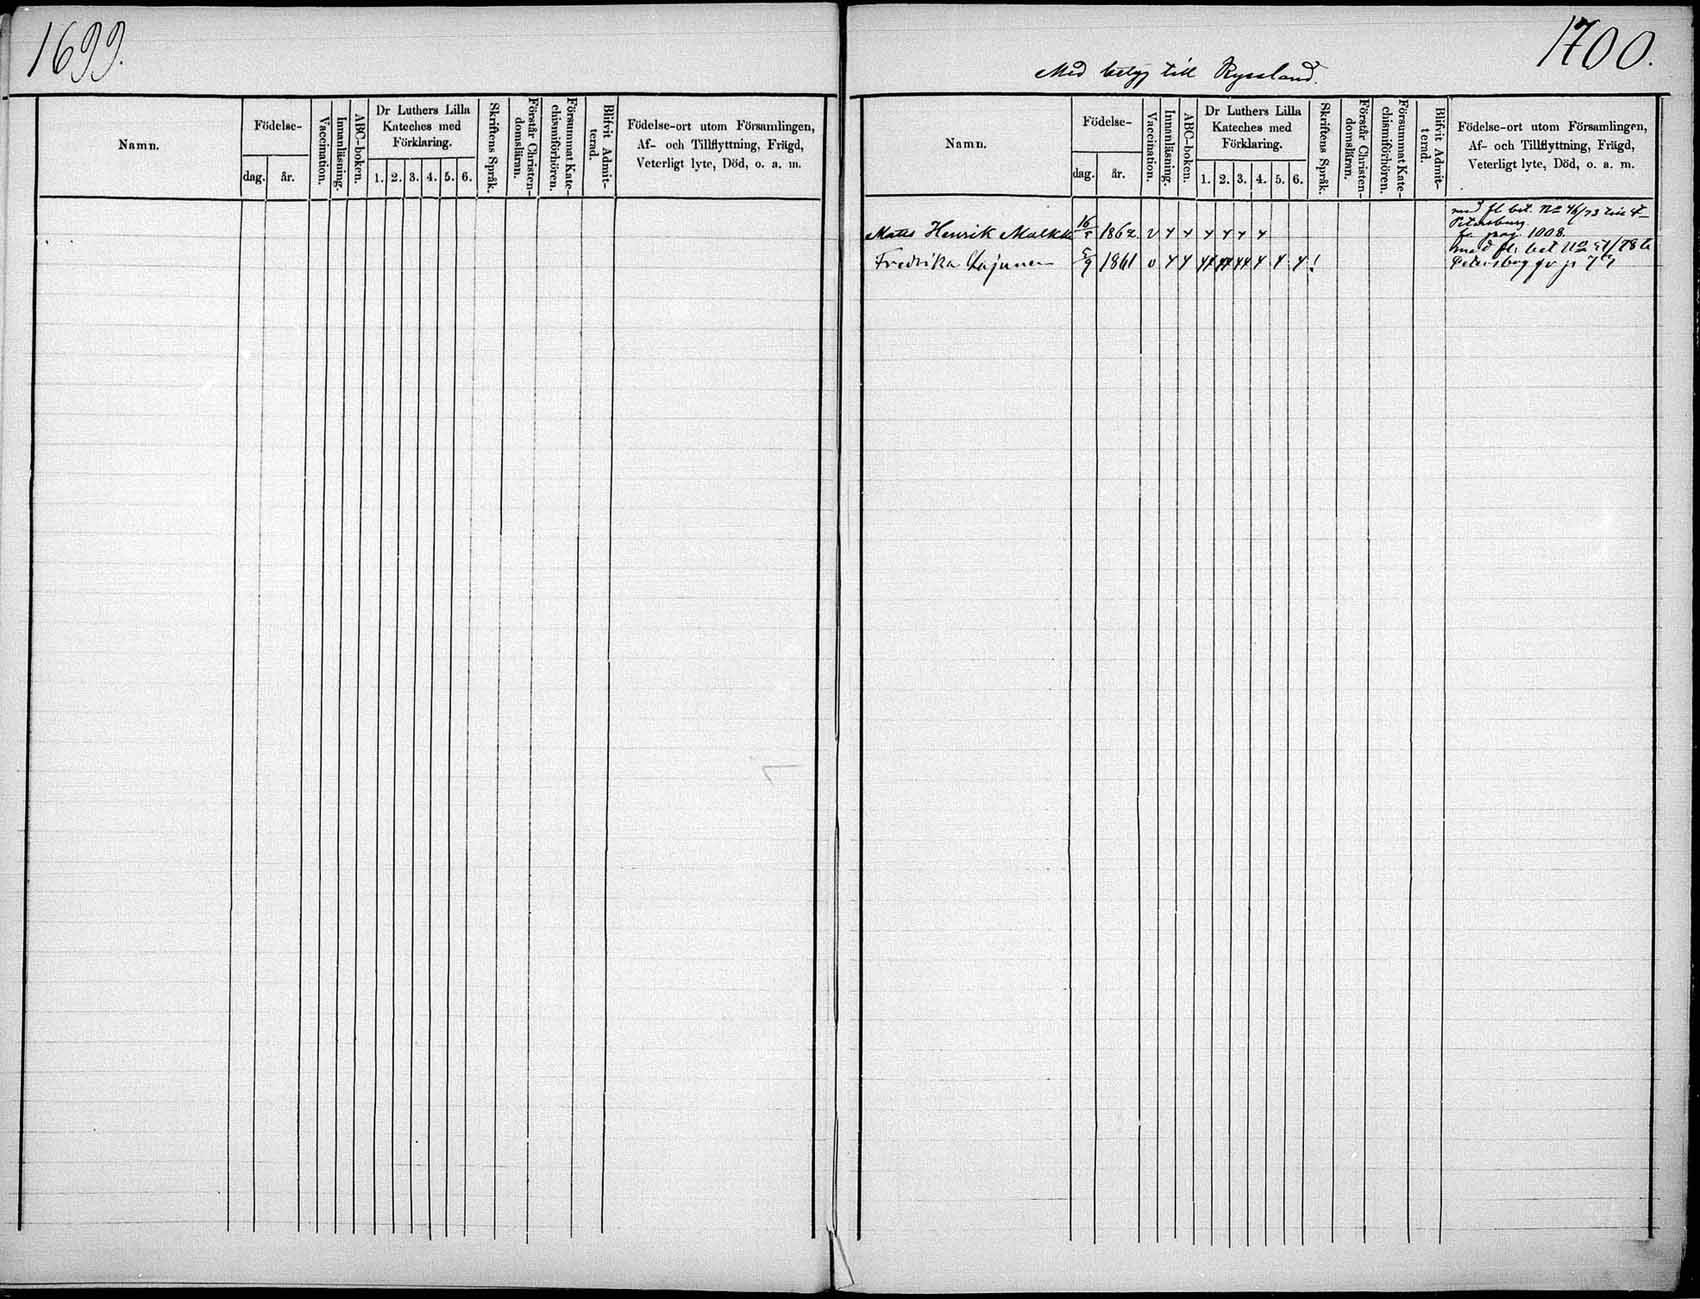 1699.
Namn.
Födelse-
dag.
år.
Vaccination.
Innanläsning.
ABC-boken.
Dr Luthers Lilla
Kateches med
Förklaring.
1. 2. 3. 4. 5. 6.
Skriftens Språk.
Förstår Christen-
domsläran.
Försummat Kate-
chismiförhören.
Blifvit Admit-
terad.
Födelse-ort utom Församlingen,
Af- och Tillflyttning, Frägd,
Veterligt lyte, Död, o. a. m.
1700.
Med betyg till Ryssland.
Namn.
Födelse-
dag.
år.
Vaccination.
Innanläsning.
ABC-boken.
Dr Luthers Lilla
Kateches med
Förklaring.
1. 2. 3. 4. 5. 6.
Skriftens Språk.
Förstår Christen-
domsläran.
Försummat Kate-
chismiförhören.
Blifvit Admit-
terad.
Födelse-ort utom Församlingen,
Af- och Tillflyttning, Frägd,
Veterligt lyte, Död, o. a. m.
med fl bet. No 46/73 till
Petersburg
pag. 1008.
Mats Henrik Malkk 16/5 1862. v
med fl. bet No /78
Fredrika Lajunen 5/9 1861 v
Petersbog